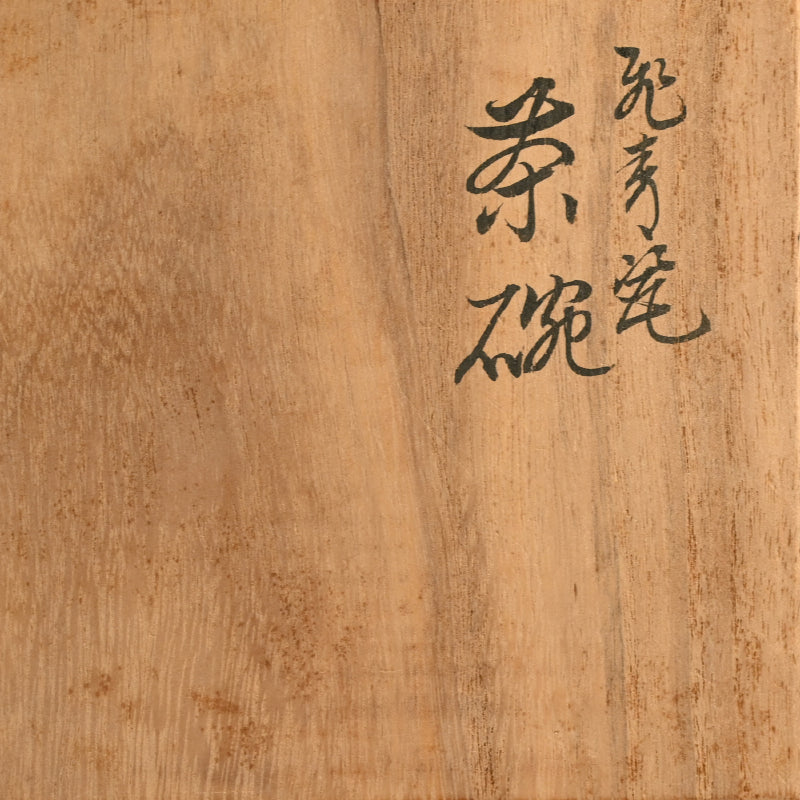 飛青瓷
茶碗